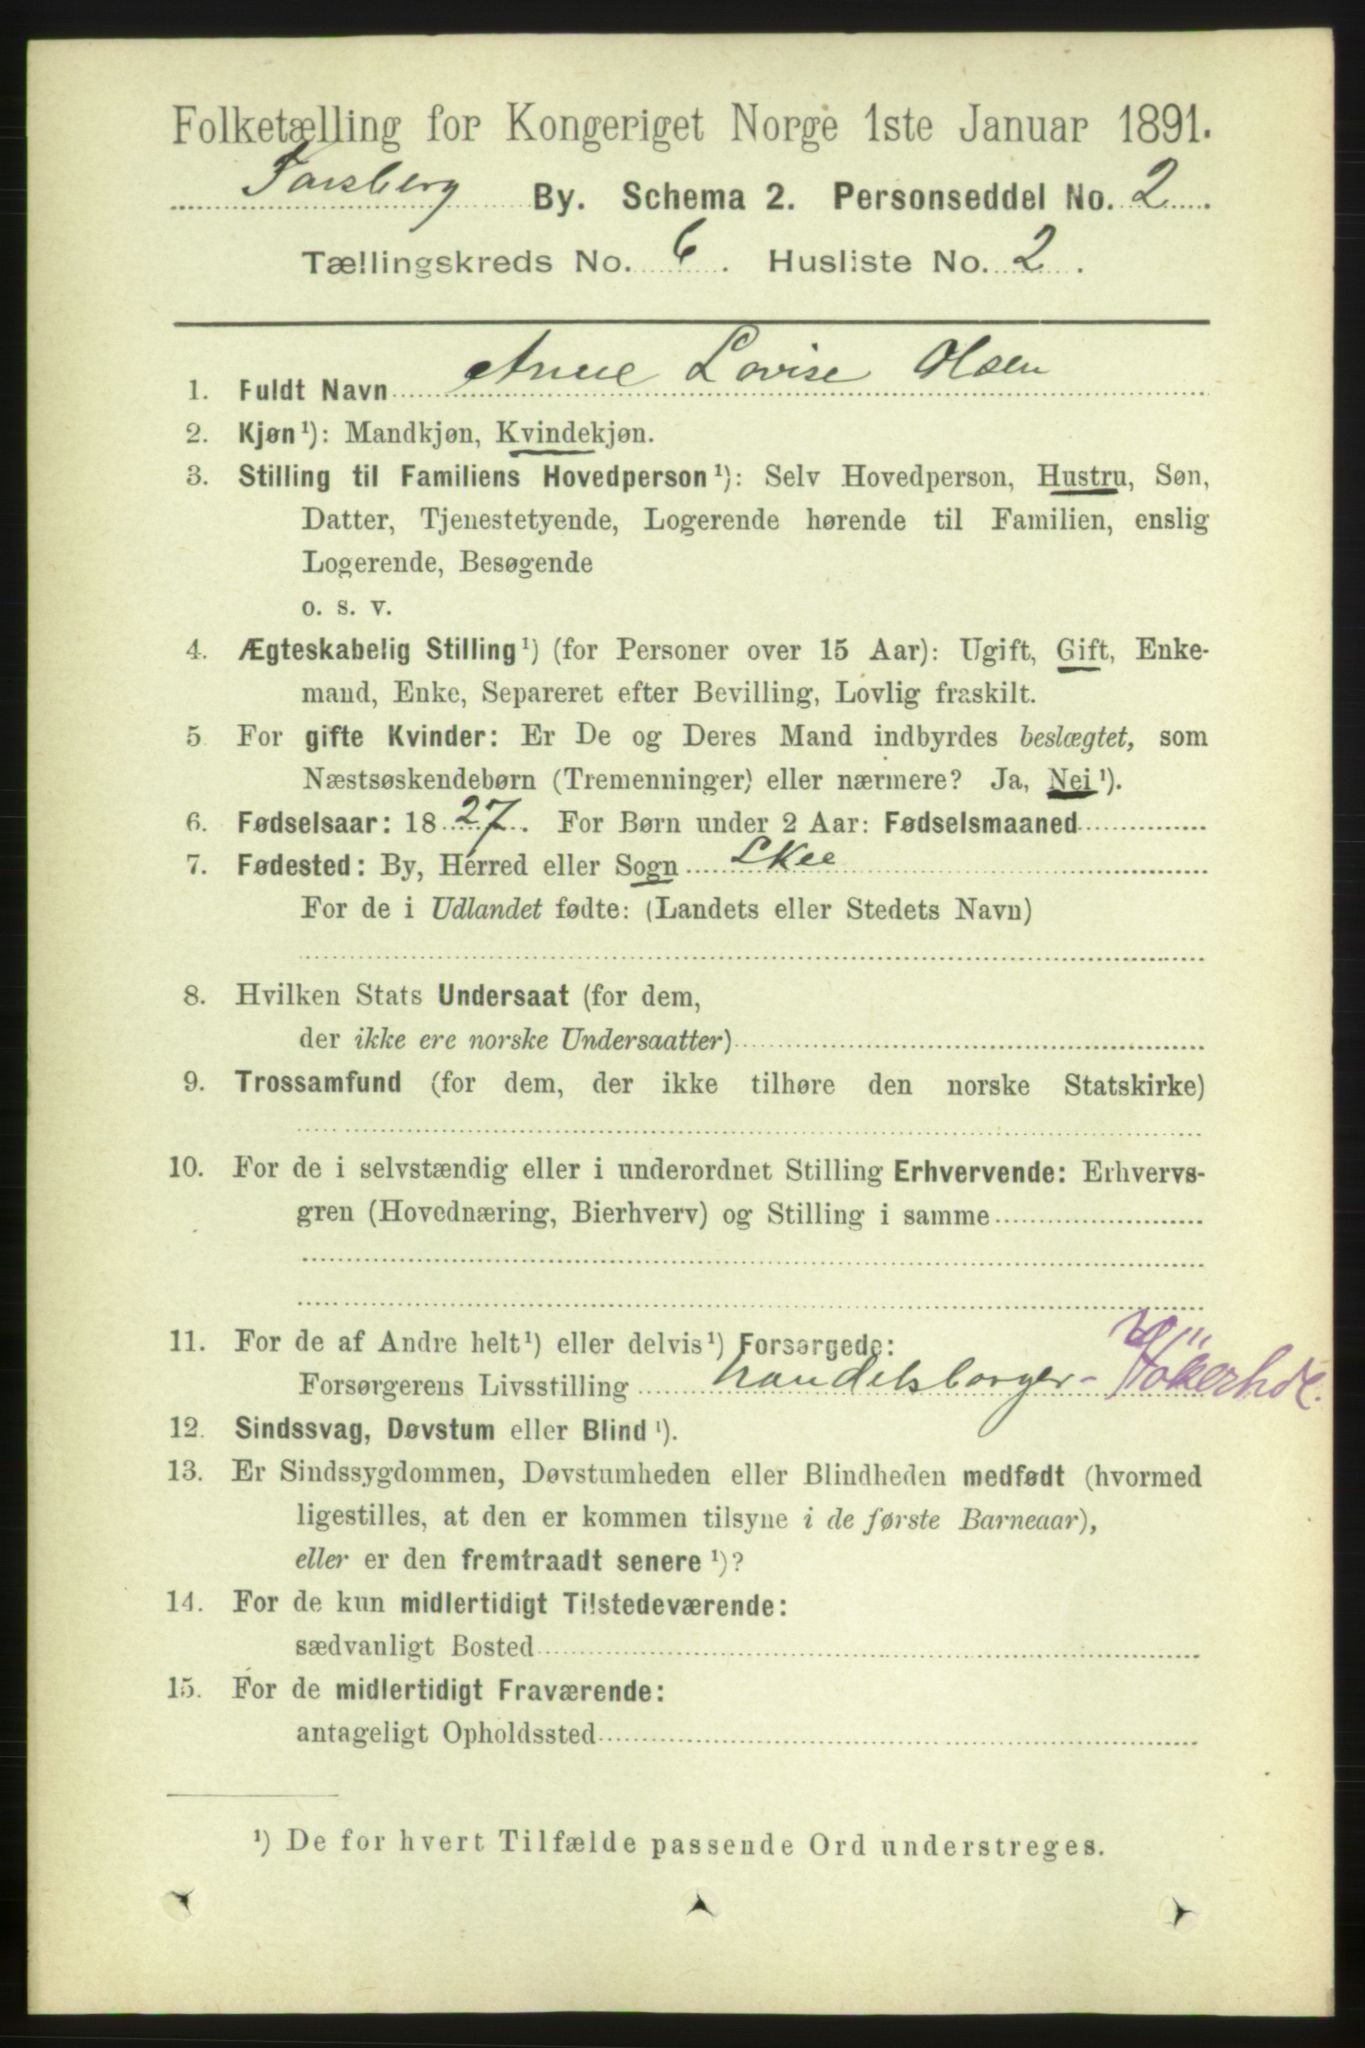 Folketælling for Kongeriget Norge 1ste Januar 1891.
By. Schema 2. Personseddel No. 2
Tællingskreds No. 6. Husliste No. 2.
1. Fuldt Navn Anne Lovise Olsen
2. Kjøn ¹): Mandkjøn, Kvindekjøn.
3. Stilling til Familiens Hovedperson ¹): Selv Hovedperson, Hustru, Søn,
Datter, Tjenestetyende, Logerende hørende til Familien, enslig
Logerende, Besøgende
o. s. v.
4. Ægteskabelig Stilling ¹) (for Personer over 15 Aar): Ugift, Gift, Enke-
mand, Enke, Separeret efter Bevilling, Lovlig fraskilt.
5 For gifte Kvinder: Er De og Deres Mand indbyrdes beslægtet, som
Næstsøskendebørn (Tremenninger) eller nærmere? Ja, Nei ¹).
6. Fødselsaar: 1827. For Børn under 2 Aar: Fødselsmaaned
7. Fødested: By, Herred eller Sogn Skee
For de i Udlandet fødte: (Landets eller Stedets Navn)
8. Hvilken Stats Undersaat (for dem,
der ikke ere norske Undersaatter)
9. Trossamfund (for dem, der ikke tilhøre den norske Statskirke)
10. For de i selvstændig eller i underordnet Stilling Erhvervende: Erhvervs-
gren (Hovednæring, Bierhverv) og Stilling i samme
11. For de af Andre helt ¹) eller delvis ¹) Forsørgede:
Forsørgerens Livsstilling handelsborger - Hökerhdl.
12. Sindssvag, Døvstum eller Blind ¹).
13. Er Sindssygdommen, Døvstumheden eller Blindheden medfødt (hvormed
ligestilles, at den er kommen tilsyne i de første Barneaar),
eller er den fremtraadt senere ¹)?
14. For de kun midlertidigt Tilstedeværende:
sædvanligt Bosted
15. For de midlertidigt Fraværende:
antageligt Opholdssted
¹) De for hvert Tilfælde passende Ord understreges.